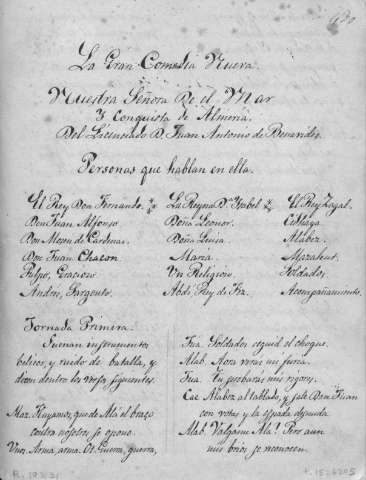 La Gran Comedia Nueva.
Nuestra Señora De el Mar
Y Conquista de Almeria.
Del Licenciado D. Juan Antonio de Benavides.
Personas que hablan en ella.
El Rey Don Fernando.
Don Juan Alfonso
Don Mosen de Cardenas.
Don Juan Chacon
Pulpo, Gracioso
Andres, Sargento.
La Reyna D.ª Isabel
Doña Leonor.
Doña Luisa.
Maria.
Un Religioso.
Abdi, Rey de Fez.
El Rey Zagal.
Alabez.
Soldados.
Acompañamiento.
Jornada Primera.
Suenan instrumentos
belicos, y ruido de batalla, y
dicen dentro los versos siguientes.
Huyamos, que de Alá el brazo
contra nosotros se opone.
Unos. Arma, arma. Ot. Guerra, guerra,
Jua. Soldados seguid el choque.
Alab. Aora veras mi furia.
Jua. Tu probaras mis rigores.
Cae Alabez al tablado, y sale Don Juan
con votas y la espada desnuda.
Alab. Valgame Ala! Pero aun
mis brios se reconocen.